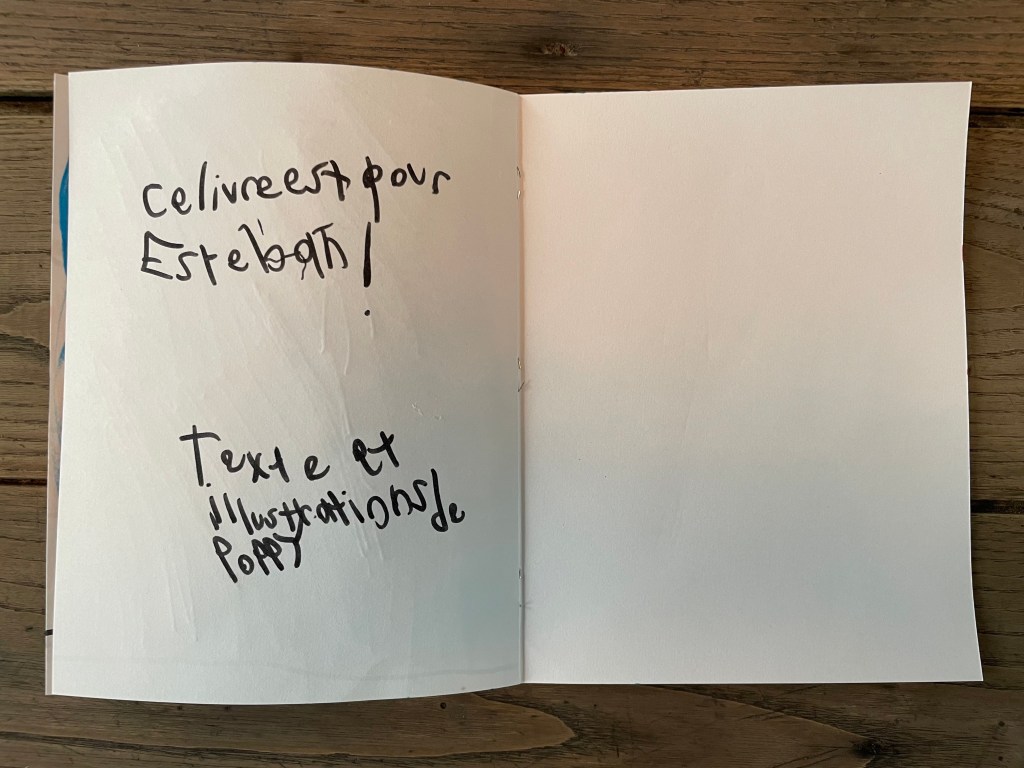 ce livre est pour
Esteban !
Texte et
illustrations de
Poppy